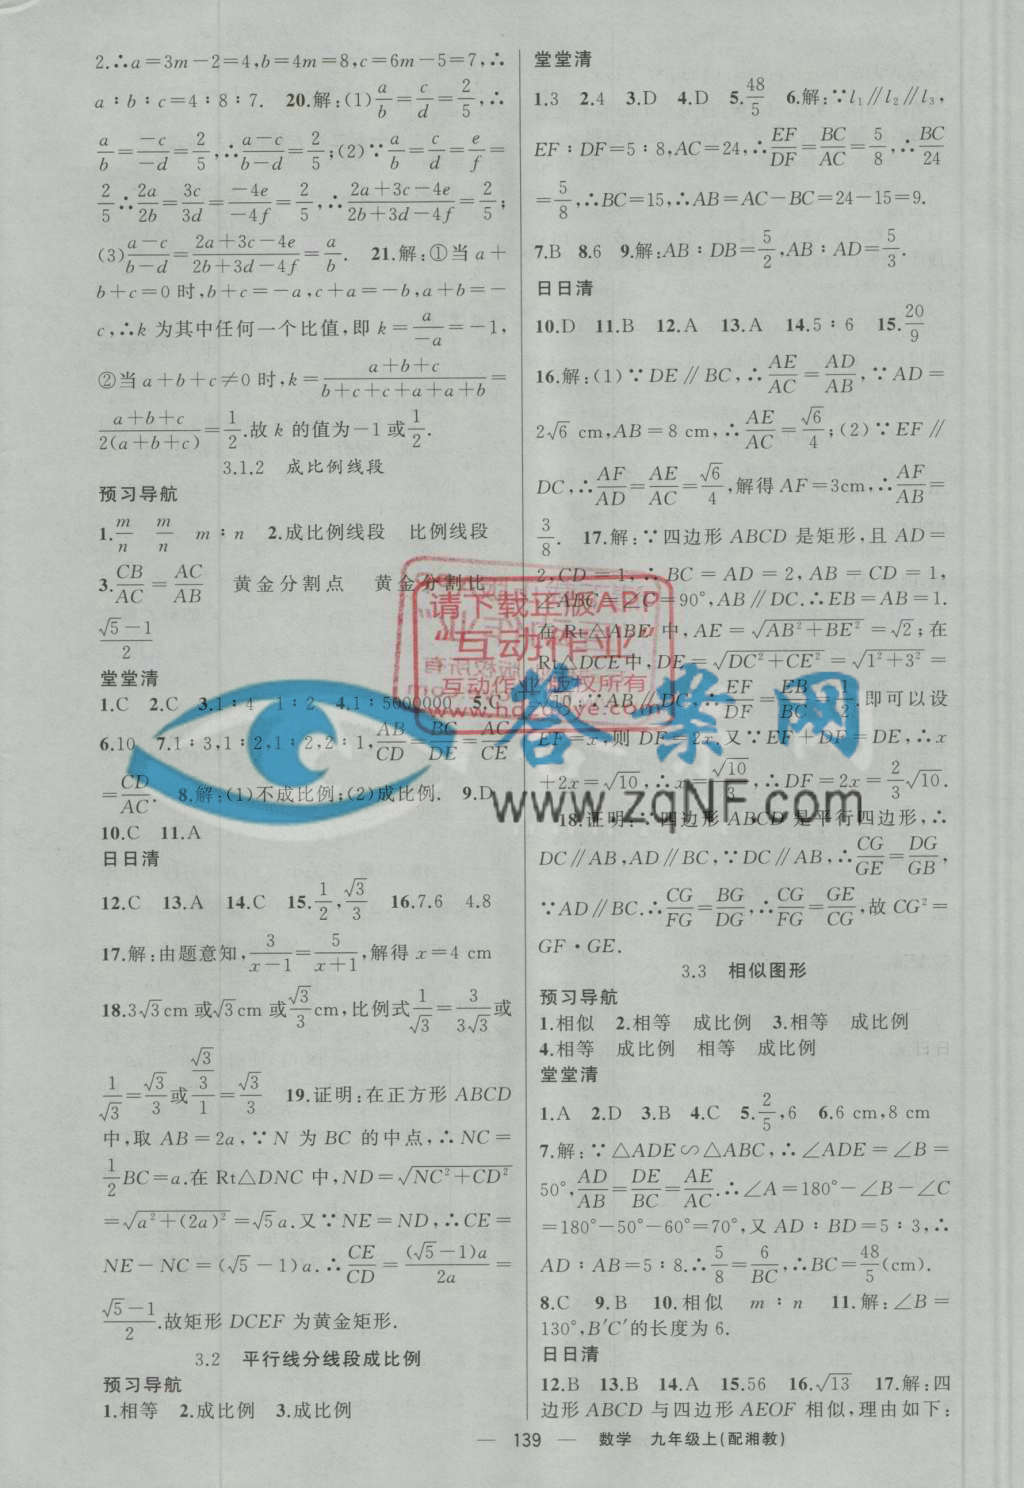 2.∴a=3m-2=4,b=4m=8,c=6m-5=7,∴
a∶b∶c=4∶8∶7. 20.解:(1)a/b=c/d=2/5,∴
a/b=-c/-d=2/5,∴(a-c)/(b-d)=2/5;(2)∵a/b=c/d=e/f=
2/5∴2a/2b=3c/3d=-4e/-4f=2/5,∴(2a+3c-4e)/(2b+3d-4f)=2/5;
(3)(a-c)/(b-d)=(2a+3c-4e)/(2b+3d-4f)=a/b. 21.解:①当a+
b+c=0时,b+c=-a,c+a=-b,a+b=-
c,∴k为其中任何一个比值,即k=a/-a=-1,
②当a+b+c≠0时,k=(a+b+c)/(b+c+c+a+a+b)=
(a+b+c)/2(a+b+c)=1/2.故k的值为-1或1/2.
3.1.2 成比例线段
预习导航
1.m/n m/n m∶n 2.成比例线段 比例线段
3.CB/AC=AC/AB 黄金分割点 黄金分割比
(√5-1)/2
堂堂清
1.C 2.C 3.1∶4 1∶2 4.1∶5000000 5.C
6.10 7.1∶3,1∶2,1∶2,2∶1,AB/CD=BC/DE=AC/CE
=CD/AC. 8.解:(1)不成比例;(2)成比例. 9.D
10.C 11.A
日日清
12.C 13.A 14.C 15.1/2,√3/3 16.7.6 4.8
17.解:由题意知,3/(x-1)=5/(x+1),解得x=4 cm
18.3√3cm或√3cm或√3/3cm,比例式1/√3=3/3√3或
1/√3=√3/3或(√3/3)/1=√3/3 19.证明:在正方形ABCD
中,取AB=2a,∵N为BC的中点,∴NC=
1/2BC=a.在Rt△DNC中,ND=√(NC²+CD²)
=√(a²+(2a)²)=√5a.又∵NE=ND,∴CE=
NE-NC=(√5-1)a.∴CE/CD=(√5-1)a/2a=
(√5-1)/2.故矩形DCEF为黄金矩形.
3.2 平行线分线段成比例
预习导航
1.相等 2.成比例 3.成比例
堂堂清
1.3 2.4 3.D 4.D 5.48/5 6.解:∵l₁∥l₂∥l₃,
EF∶DF=5∶8,AC=24,∴EF/DF=BC/AC=5/8,∴BC/24
=5/8,∴BC=15,∴AB=AC-BC=24-15=9.
7.B 8.6 9.解:AB∶DB=5/2,AB∶AD=5/3.
日日清
10.D 11.B 12.A 13.A 14.5∶6 15.20/9
16.解:(1)∵DE∥BC,∴AE/AC=AD/AB,∵AD=
2√6 cm,AB=8 cm,∴AE/AC=√6/4;(2)∵EF∥
DC,∴AF/AD=AE/AC=√6/4,解得AF=3cm,∴AF/AB=
3/8. 17.解:∵四边形ABCD是矩形,且AD=
2,CD=1,∴BC=AD=2,AB=CD=1,
∠ABC=∠C=90°,AB∥DC.∴EB=AB=1.
在Rt△ABE中,AE=√(AB²+BE²)=√2;在
Rt△DCE中,DE=√(DC²+CE²)=√(1²+3²)=
√10.∵AB∥DC,∴EF/DF=EB/BC=1/2.即可以设
EF=x,则DF=2x.又∵EF+DF=DE,∴x
+2x=√10,∴x=√10/3,∴DF=2x=2/3√10.
18.证明:∵四边形ABCD是平行四边形,∴
DC∥AB,AD∥BC,∵DC∥AB,∴CG/GE=DG/GB,
∵AD∥BC.∴CG/FG=BG/DG,∴CG/FG=GE/CG,故CG²=
GF·GE.
3.3 相似图形
预习导航
1.相似 2.相等 成比例 3.相等 成比例
4.相等 成比例 相等 成比例
堂堂清
1.A 2.D 3.B 4.C 5.2/5,6 6.6 cm,8 cm
7.解:∵△ADE∽△ABC,∴∠ADE=∠B=
50°,AD/AB=DE/BC=AE/AC.∴∠A=180°-∠B-∠C
=180°-50°-60°=70°,又AD∶BD=5∶3,∴
AD∶AB=5∶8.∴5/8=6/BC,∴BC=48/5(cm).
8.C 9.B 10.相似 m∶n 11.解:∠B=
130°,B′C′的长度为6.
日日清
12.B 13.B 14.A 15.56 16.√13 17.解:四
边形ABCD与四边形AEOF相似,理由如下:
— 139 — 数学 九年级上(配湘教)
请下载正版APP
互动作业
互动作业版权所有
答案网
www.zqNF.com